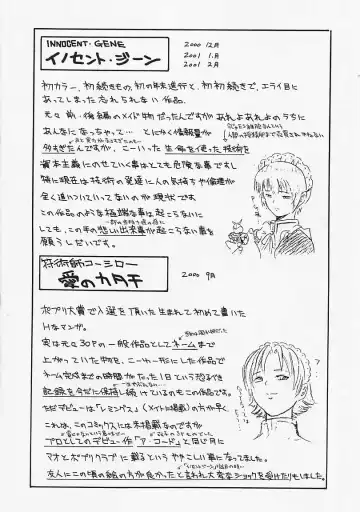 INNOCENT・GENE
イノセント・ジーン
2000 12月
2001 1月
2001 2月
初カラー、初続きもの、初の年末進行と、初初続きで、エライ目に
あってしまった忘れられない作品。
元々前・後編のメイド物だったんですがあれよあれよのうちに
あんなになっちゃって… とにかく情報量が
多すぎたんですが、こーいった生命を使った技術を
資本主義にのせていく事はとても危険な事ですし
特に現在は技術の発達に人の気持ちや倫理が
全く追いついてってないのが現状です
この作品のような極端な事は起こらないに
しても、この手の悲しい出来事が起こらない事を
願うしだいです。
符術師コーシロー
愛のカタチ
2000 9月
ポプリ大賞で入選を頂いた生まれて初めて書いた
Hなマンガ。
実は元々30Pの一般作品としてネームまで
上がっていた物を、こーれー形にした作品で
ネーム完成までの時間がたった1日という恐るべき
記録を今だに保持し続けているのもこの作品です。
ただデビューは「レミングス」(メイト掲載)の方が早く
これは、このコミックスには未掲載なのですが
プロとしてのデビュー作「ア・コード」と同じ月に
マオとポプリクラブに載るというややこしい事になってました。
友人にこの頃の絵の方が良かったと言われ大変なショックを受けたりもしました。